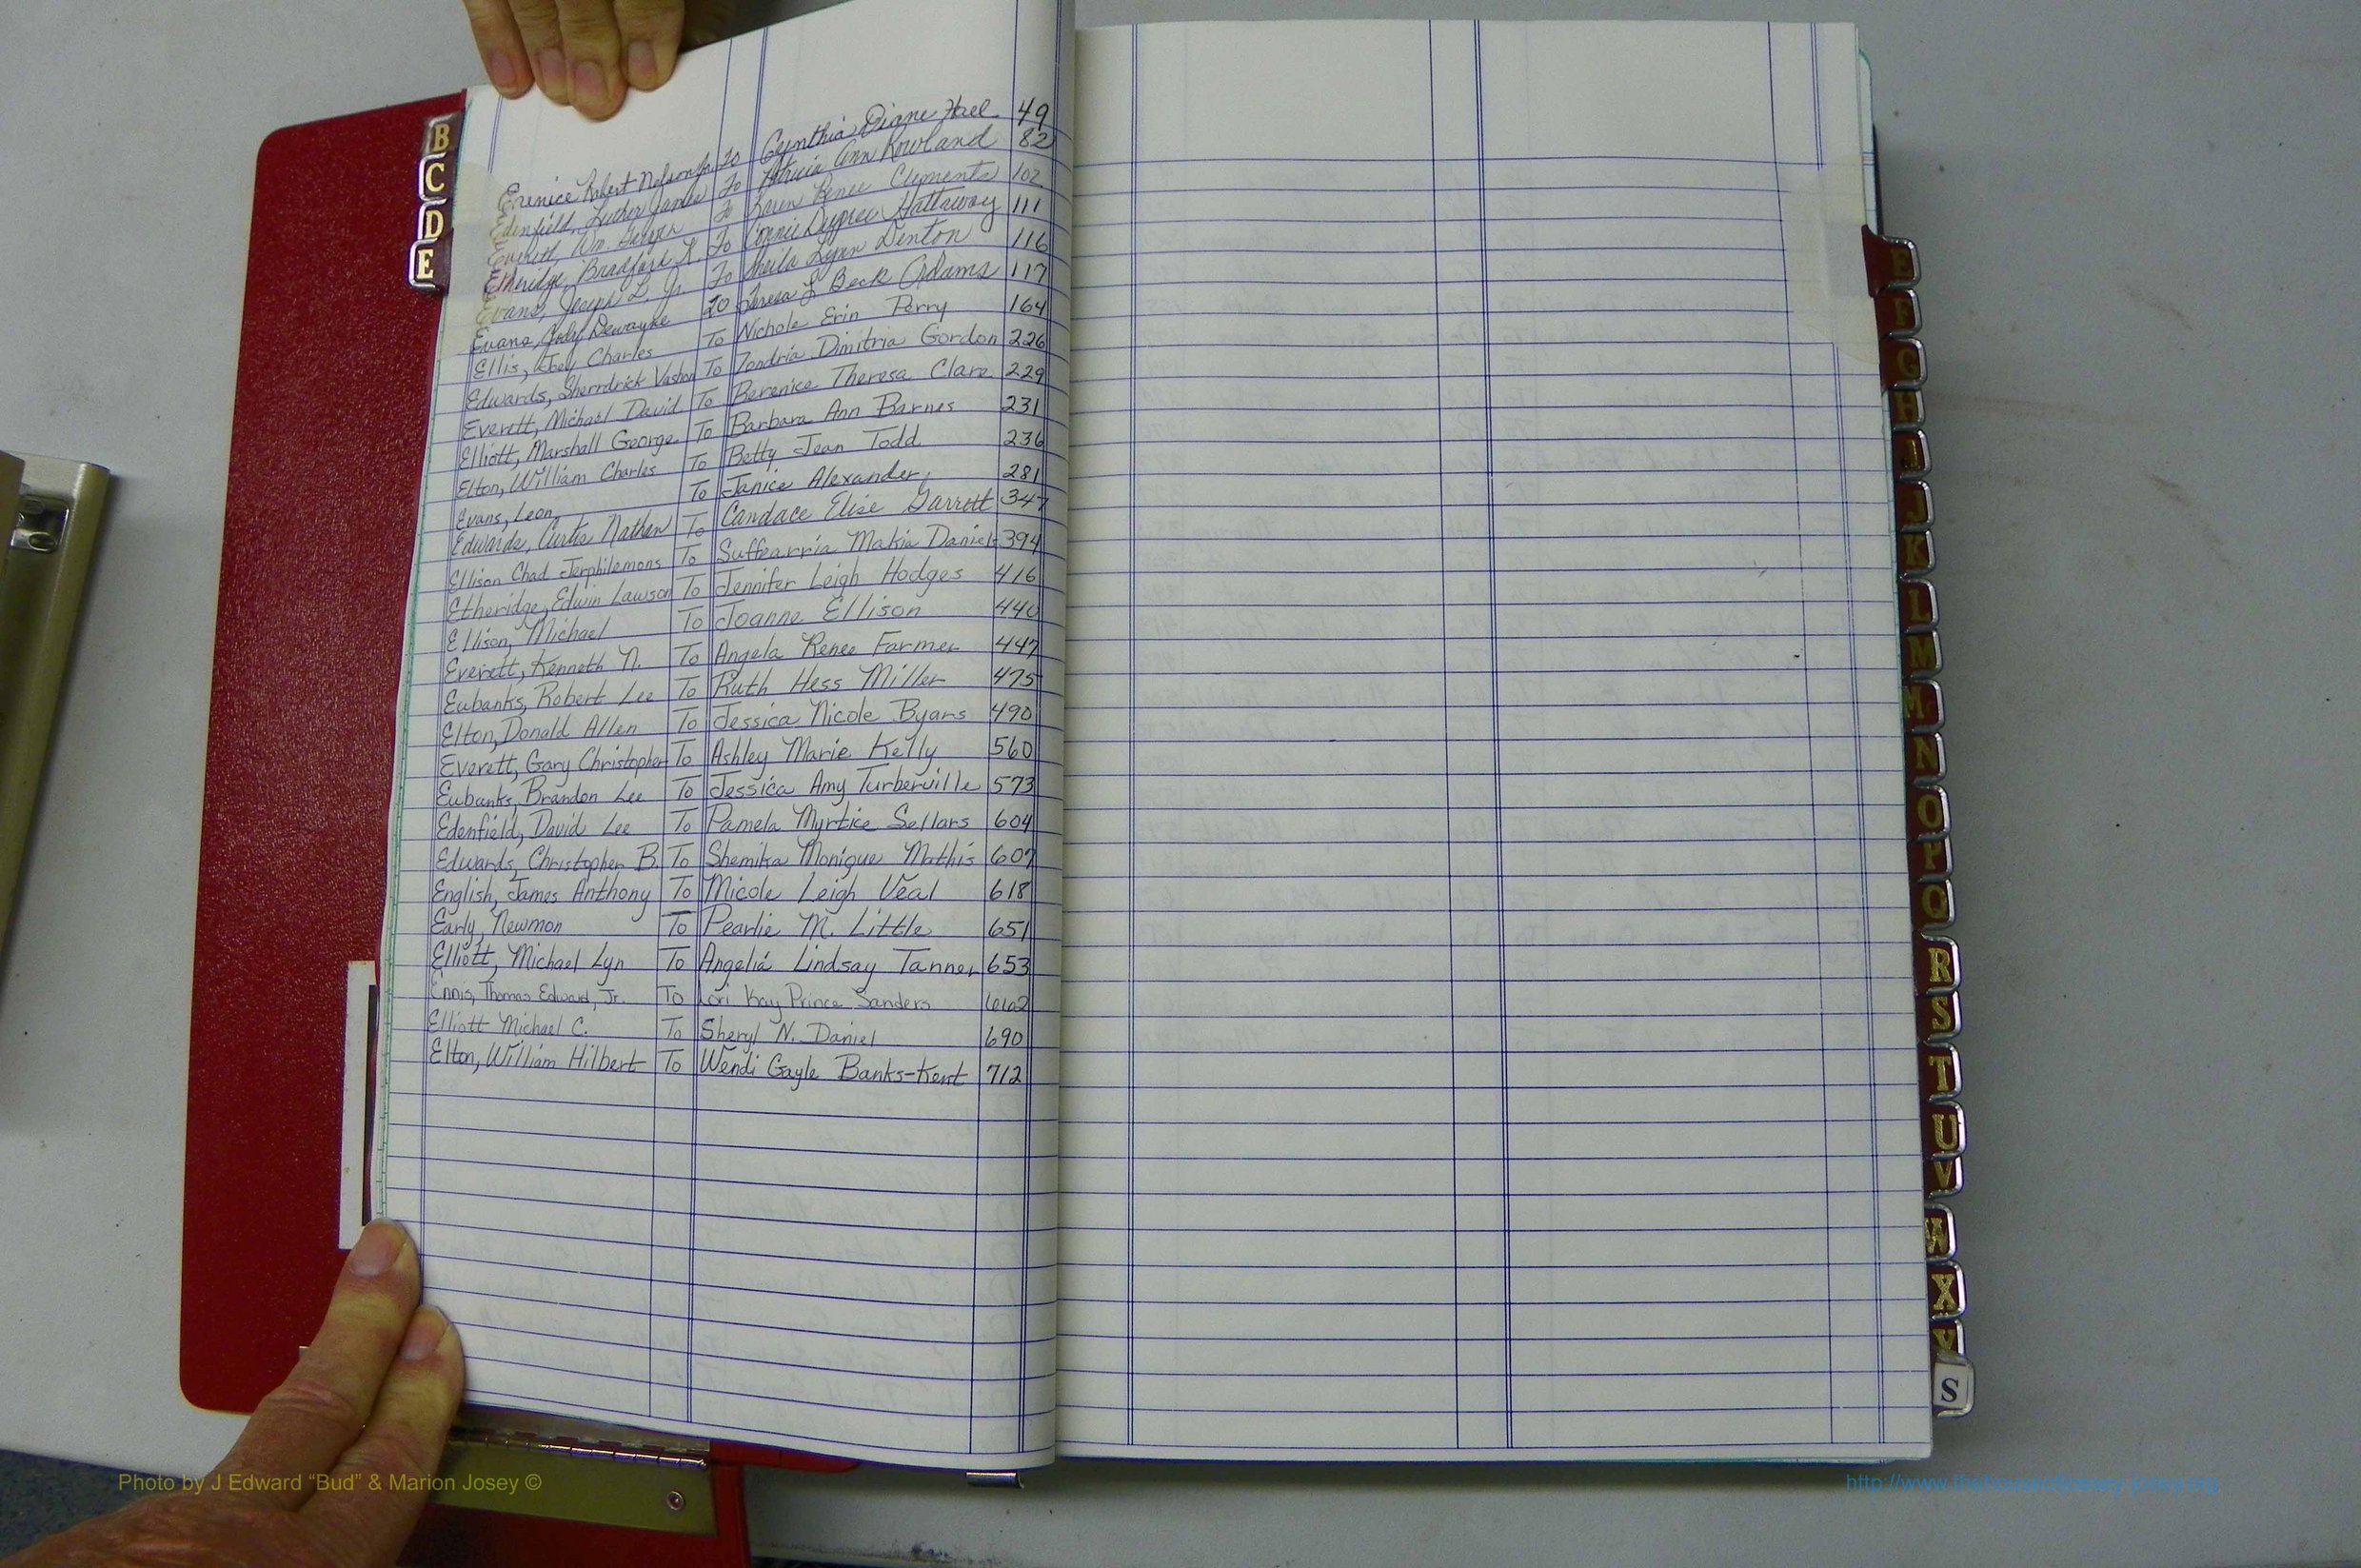 B
C
D
E
Eunice Robert Nelson Jr. To Cynthia Diane Hall 49
Edenfield, Luther James To Patricia Ann Rowland 82
Everett, Wm. To Karen Renee Clements 102
Etheridge, Bradford K To Connie Dupree Hattaway 111
Evans, Joseph L. Jr. To Sheila Lynn Denton 116
Evans, Jody Dewayne To Teresa L Beck Adams 117
Ellis, Joey Charles To Nichole Erin Perry 164
Edwards, Sherrdrick Vashon To Tondria Dimitria Gordon 226
Everett, Michael David To Berenice Theresa Clare 229
Elliott, Marshall George To Barbara Ann Barnes 231
Elton, William Charles To Betty Jean Todd 236
Evans, Leon To Janice Alexander 281
Edwards, Curtis Nathan To Candace Elise Garrott 347
Ellison Chad Jerphilemons To Suffearria Makia Daniels 394
Etheridge, Edwin Lawson To Jennifer Leigh Hodges 416
Ellison, Michael To Joanne Ellison 440
Everett, Kenneth N. To Angela Renee Farmer 447
Eubanks, Robert Lee To Ruth Hess Miller 475
Elton, Donald Allen To Jessica Nicole Byars 490
Everett, Gary Christopher To Ashley Marie Kelly 560
Eubanks, Brandon Lee To Jessica Amy Turberville 573
Edenfield, David Lee To Pamela Myrtice Sellars 604
Edwards, Christopher B. To Shemika Monique Mathis 607
English, James Anthony To Micole Leigh Veal 618
Early, Newmon To Pearlie M. Little 651
Elliott, Michael Lyn To Angelia Lindsay Tanner 653
Ennis, Thomas Edward, Jr. To Lori Kay Prince Sanders 662
Elliott Michael C. To Sheryl N. Daniel 690
Elton, William Hilbert To Wendi Gayle Banks-Kent 712
E
F
G
H
I
J
K
L
M
M
N
O
P
Q
R
S
T
U
V
W
X
Y
S
Photo by J Edward “Bud” & Marion Josey ©